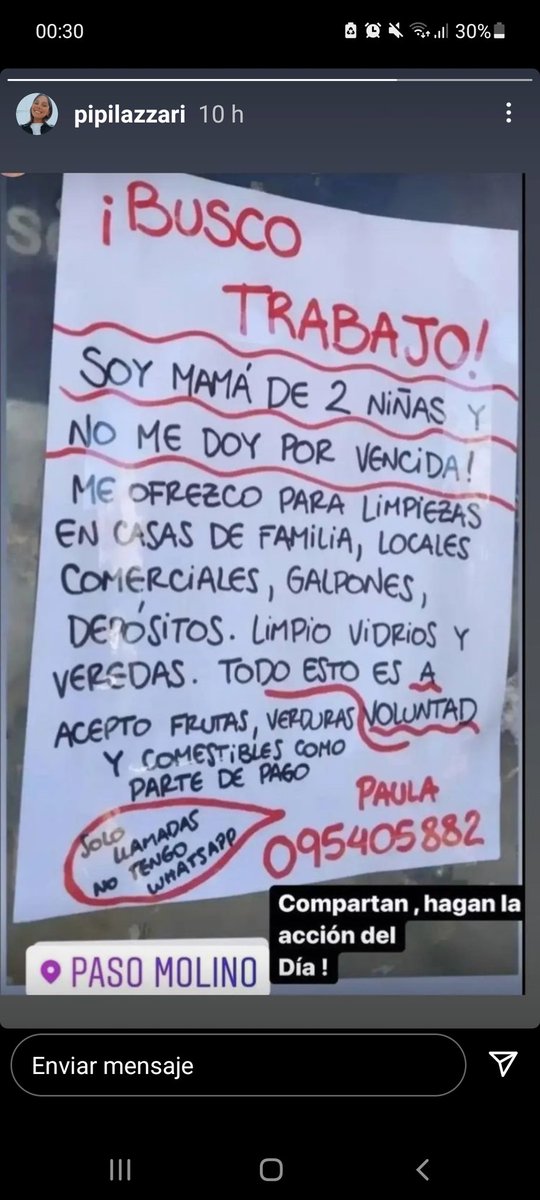 00:30
30%
pipilazzari 10 h
¡BUSCO
TRABAJO!
SOY MAMÁ DE 2 NIÑAS Y
NO ME DOY POR VENCIDA!
ME OFREZCO PARA LIMPIEZAS
EN CASAS DE FAMILIA, LOCALES
COMERCIALES, GALPONES,
DEPÓSITOS. LIMPIO VIDRIOS Y
VEREDAS. TODO ESTO ES A
VOLUNTAD
ACEPTO FRUTAS, VERDURAS
Y COMESTIBLES COMO
PARTE DE PAGO
PAULA
095405882
SOLO
LLAMADAS
NO TENGO
WHATSAPP
Compartan , hagan la
acción del
Día !
PASO MOLINO
Enviar mensaje